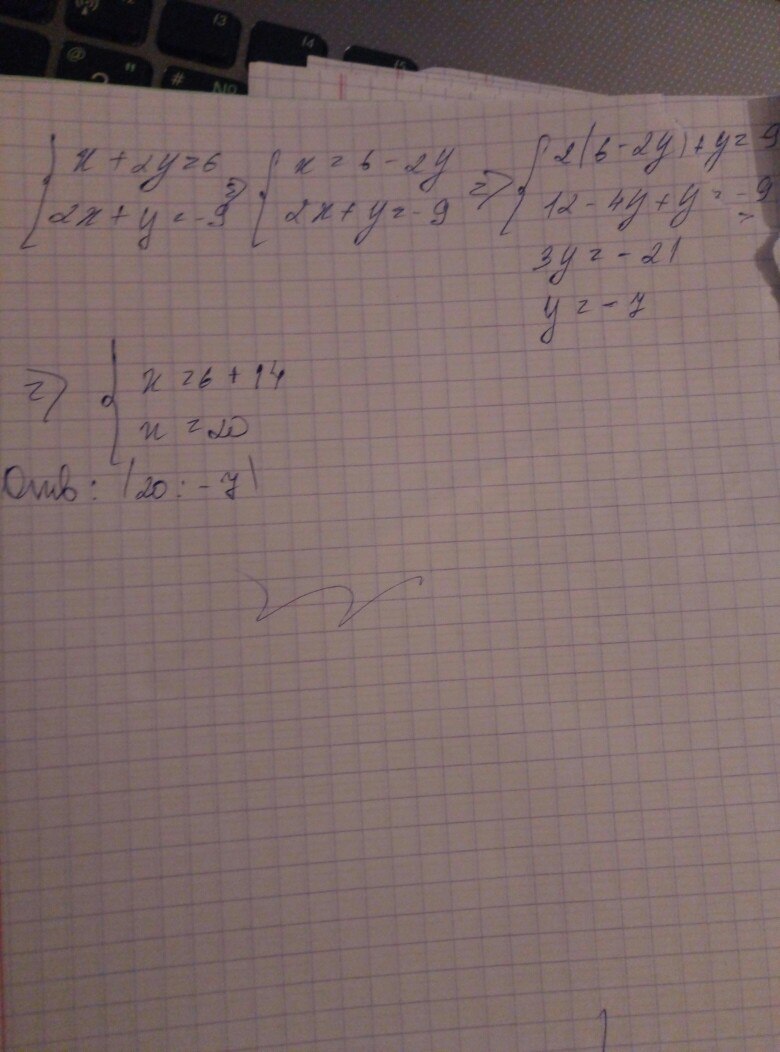 { x + 2y = 6
2x + y = -9 => { x = 6 - 2y
2x + y = -9 => { 2(6 - 2y) + y = -9
12 - 4y + y = -9 =>
3y = -21
y = -7
=> { x = 6 + 14
x = 20
Отв: (20 : -7)